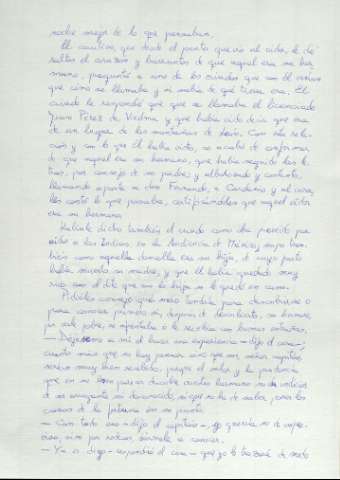 nadie mejor de lo que pensaban.
El cautivo, que desde el punto que vio al oidor, le dio
saltos el corazón y barruntos de que aquel era su her
mano, preguntó a uno de los criados que con él venían
que cómo se llamaba y si sabía de qué tierra era. El
criado le respondió que se llamaba el licenciado
Juan Pérez de Viedma, y que había oído decir que era
de un lugar de las montañas de León. Con esta rela-
ción y con lo que él había visto, se acabó de confirmar
de que aquel era su hermano, que había seguido las le
tras, por consejo de su padre; y alborotado y contento,
llamando aparte a don Fernando, a Cardenio y al cura,
les contó lo que pasaba, certificándoles que aquel oidor
era su hermano.
Habíale dicho también el criado como iba proveído por
oidor a las Indias, en la Audiencia de México; supo tam-
bién como aquella doncella era su hija, de cuyo parto
había muerto su madre, y que él había quedado muy
rico con el dote que con la hija se le quedó en casa.
Pidióles consejo qué modo tendría para descubrirse o
para conocer primero si, después de descubierto, su hermano,
por verle pobre, se afrentaba o le recibía con buenas entrañas.
— Déjeseme a mí el hacer esa experiencia — dijo el cura —;
cuanto más que no hay pensar sino que vos, señor capitán,
seréis muy bien recibido; porque el valor y la prudencia
que en su buen parecer descubre vuestro hermano no da indicios
de ser arrogante ni desconocido, ni que no ha de saber poner los
casos de la fortuna en su punto.
— Con todo eso — dijo el capitán —, yo querría no de impro-
viso, sino por rodeos, dármele a conocer.
— Ya os digo — respondió el cura — que yo lo trazaré de modo